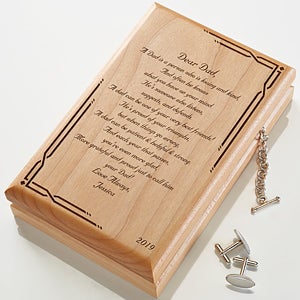 Dear Dad,
A Dad is a person who is loving and kind,
And often he knows
what you have on your mind.
He's someone who listens,
suggests, and defends
A dad can be one of your very best friends!
He's proud of your triumphs,
but when things go wrong,
A dad can be patient & helpful & strong
And each year that passes,
you're even more glad,
More grateful and proud just to call him
your Dad!
Love Always,
Jessica
2019